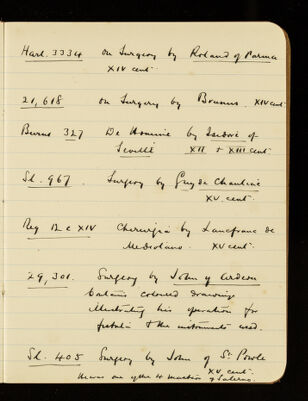 Harl. 3334 on Surgery by Roland of Parma
XIV cent.
21,618 on Surgery by Brunus. XIV cent
Burns 327 De Homine by Isidore of
Seville XII & XIII cent.
Sl. 967 Surgery by Guy de Chauliac
XV. cent.
Reg 12 c XIV Chirurgia by Lanfranc de
Mediolano. XV cent.
29,301. Surgery by John of Arderne
Contains coloured drawings
illustrating his operation for
fistula & the instruments used.
Sl. 405 Surgery by John of St. Powle
XV cent.
He was one of the 4 masters of Salerno.